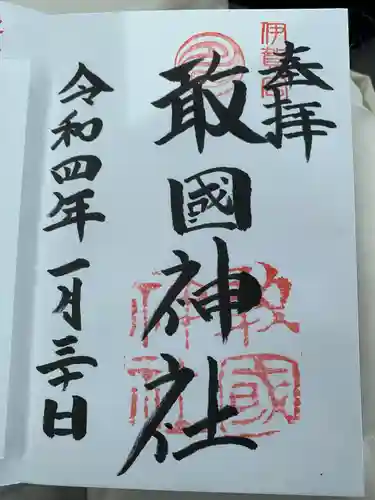 奉拝
伊賀國
敢國神社
敢國神社
令和四年一月三十日